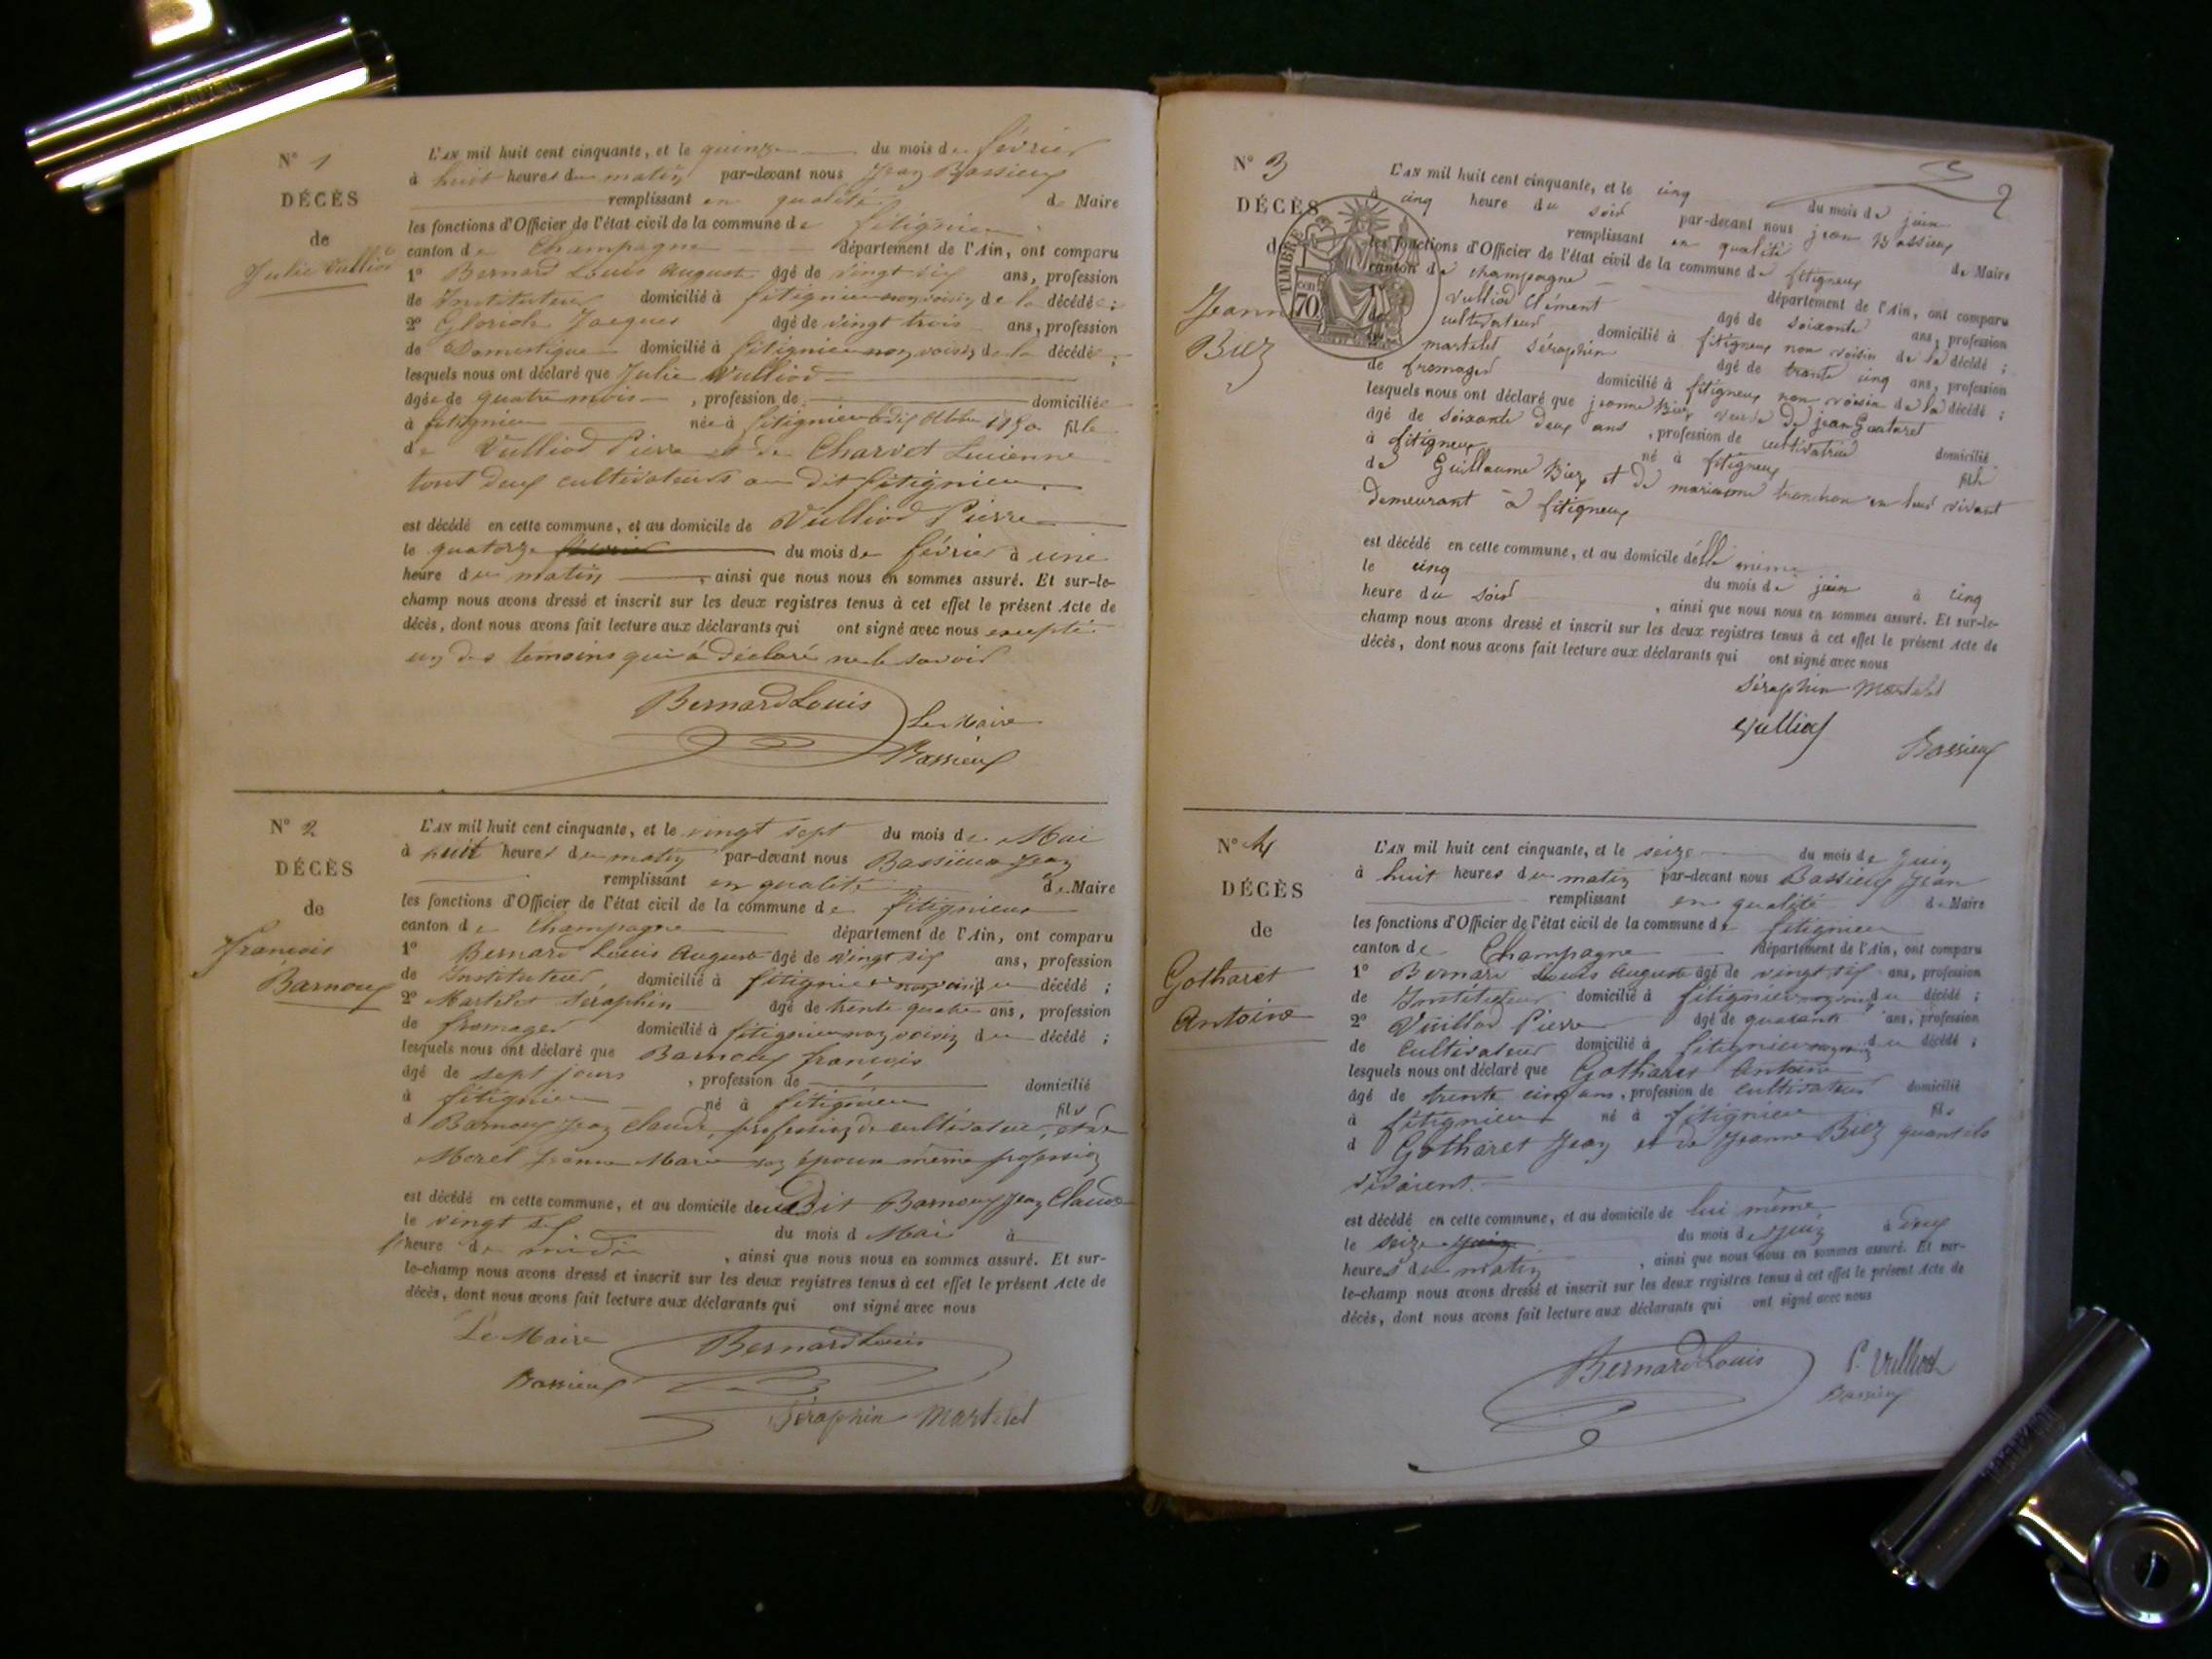 N° 1
DÉCÈS
de
Julie Vulliod
L'AN mil huit cent cinquante, et le quinze du mois de février
à huit heures du matin par-devant nous Jean Bassieux
remplissant en qualité de Maire
les fonctions d'Officier de l'état civil de la commune de fitignieu
canton de Champagne département de l'Ain, ont comparu
1° Bernard Louis Auguste âgé de vingt six ans, profession
de Instituteur domicilié à fitignieu non voisin de la décédée ;
2° Jacques âgé de vingt trois ans, profession
de Domestique domicilié à fitignieu non voisin de la décédée ;
lesquels nous ont déclaré que Julie Vulliod
âgée de quatre mois , profession de domiciliée
à fitignieu née à fitignieu fille
de Vulliod Pierre et de Charvet Lucienne
tout deux cultivateurs au dit fitignieu.
est décédé en cette commune, et au domicile de Vulliod Pierre
le quatorze du mois de février à une
heure du matin , ainsi que nous nous en sommes assuré. Et sur-le-
champ nous avons dressé et inscrit sur les deux registres tenus à cet effet le présent Acte de
décès, dont nous avons fait lecture aux déclarants qui ont signé avec nous excepté
un des temoins qui à déclaré ne le savoir
Bernard Louis
Le Maire
Bassieux
N° 2
DÉCÈS
de
françois
Barnoux
L'AN mil huit cent cinquante, et le vingt sept du mois de Mai
à huit heures du matin par-devant nous Bassieux Jean
remplissant en qualité de Maire
les fonctions d'Officier de l'état civil de la commune de fitignieux
canton de Champagne département de l'Ain, ont comparu
1° Bernard Louis Auguste âgé de vingt six ans, profession
de Instituteur domicilié à fitignieu non voisin du décédé ;
2° Martelet Séraphin âgé de trente quatre ans, profession
de fromager domicilié à fitignieu non voisin du décédé ;
lesquels nous ont déclaré que Barnoux françois
âgé de sept jours , profession de domicilié
à fitignieu né à fitignieu fils
d Barnoux Jean Claude, profession de cultivateur, et de
Morel Jeanne Marie son épouse même profession
est décédé en cette commune, et au domicile du Dit Barnoux Jean Claude
le vingt six du mois d Mai à
heure de midi , ainsi que nous nous en sommes assuré. Et sur-
le-champ nous avons dressé et inscrit sur les deux registres tenus à cet effet le présent Acte de
décès, dont nous avons fait lecture aux déclarants qui ont signé avec nous
Le Maire
Bernard Louis
Bassieux
Séraphin Martelet
2
N° 3
DÉCÈS
de
Jeanne
Biez
TIMBRE
70
L'AN mil huit cent cinquante, et le cinq du mois de juin
à cinq heure du soir par-devant nous jean Bassieux
remplissant en qualité de Maire
les fonctions d'Officier de l'état civil de la commune de fitigneux
canton de champagne département de l'Ain, ont comparu
1° Vulliod Clément âgé de soixante ans, profession
de cultivateur domicilié à fitigneux non voisin de la décédé ;
2° martelet Séraphin âgé de trante cinq ans, profession
de fromager domicilié à fitigneux non voisin de la décédé ;
lesquels nous ont déclaré que jeanne Biez veuve de jean Goutaret
âgé de soixante deux ans , profession de cultivatrice domicilié
à fitigneux né à fitigneux fille
de Guillaume Biez et de marianne tranchan en leur vivant
demeurant à fitigneux
est décédé en cette commune, et au domicile d'elle même
le cinq du mois de juin à cinq
heure du soir , ainsi que nous nous en sommes assuré. Et sur-le-
champ nous avons dressé et inscrit sur les deux registres tenus à cet effet le présent Acte de
décès, dont nous avons fait lecture aux déclarants qui ont signé avec nous
Séraphin Martelet
Vulliod
Bassieux
N° 4
DÉCÈS
de
Gotharet
Antoine
L'AN mil huit cent cinquante, et le seize du mois de Juin
à huit heures du matin par-devant nous Bassieux Jean
remplissant en qualité de Maire
les fonctions d'Officier de l'état civil de la commune de fitignieu
canton de Champagne département de l'Ain, ont comparu
1° Bernard Louis Auguste âgé de vingt six ans, profession
de Instituteur domicilié à fitignieu non voisin du décédé ;
2° Vuilliod Pierre âgé de quarante ans, profession
de Cultivateur domicilié à fitignieu non voisin du décédé ;
lesquels nous ont déclaré que Gotharet Antoine
âgé de trente cinq ans , profession de Cultivateur domicilié
à fitignieu né à fitignieu fils
d Gotharet Jean et de Jeanne Biez quant ils
vivaient.
est décédé en cette commune, et au domicile de lui même
le seize du mois de Juin à deux
heures du matin , ainsi que nous nous en sommes assuré. Et sur-
le-champ nous avons dressé et inscrit sur les deux registres tenus à cet effet le présent Acte de
décès, dont nous avons fait lecture aux déclarants qui ont signé avec nous
Bernard Louis
P. Vulliod
Bassieux